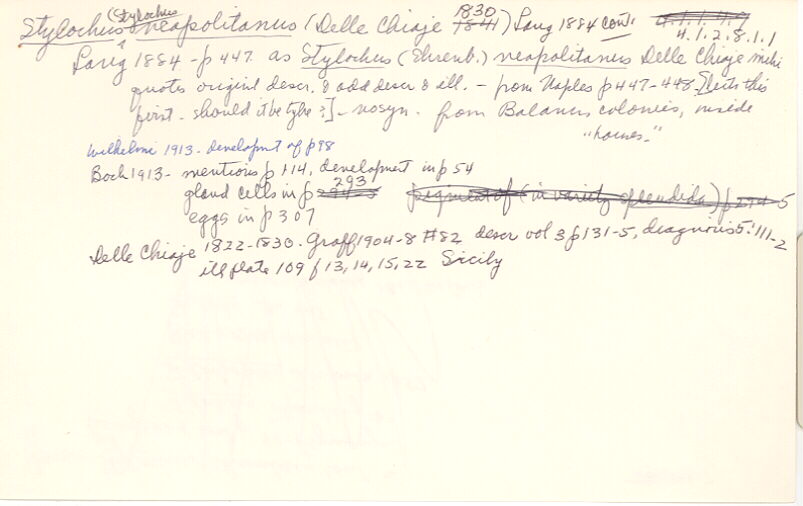 Stylochus (Stylochus neapolitanus (Delle Chiaje 1830 1841) Lang 1884 cont. 4.1.1.4.7
4.1.2.8.1.1
Lang 1884 - p 447 as Stylochus (Ehrenb.) neapolitanus Delle Chiaje mihi
quotes original descr. & add descr & ill. - from Naples p 447-448 - [lists this
first - should it be type?] - no syn. from Balanus colonies, inside
"homes."
Wilhelmi 1913 - development of p 98
Bock 1913 - mentions p 114, development in p 54
gland cells in p 293 pigment of (in variety splendida) p 294-5
eggs in p 307
Delle Chiaje 1822-1830. Graff 1904-8 #82 descr vol 3 p 131-5, diagnosis 5:111-2
ill plate 109 f 13, 14, 15, 22 Sicily